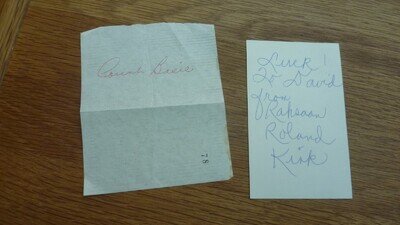 Count Basie
- 8
Luck!
To David
from
Rahsaan
Roland
Kirk